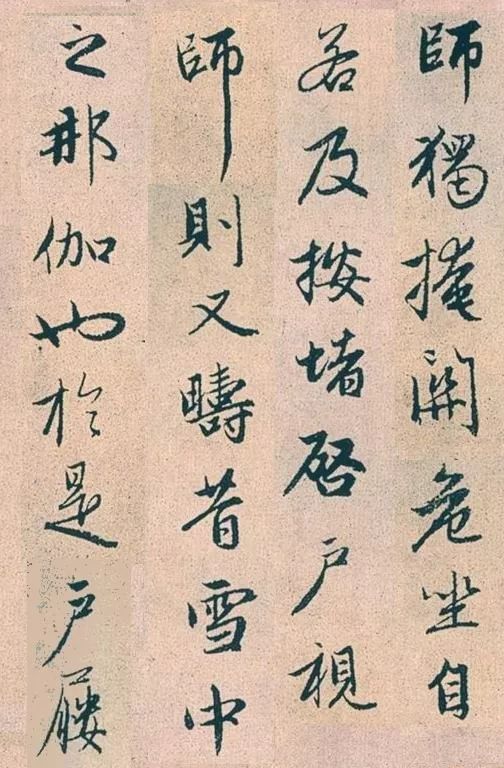 師獨掩關危坐自
若及按堵啓户視
師則又疇昔雪中
之那伽也於是户屨